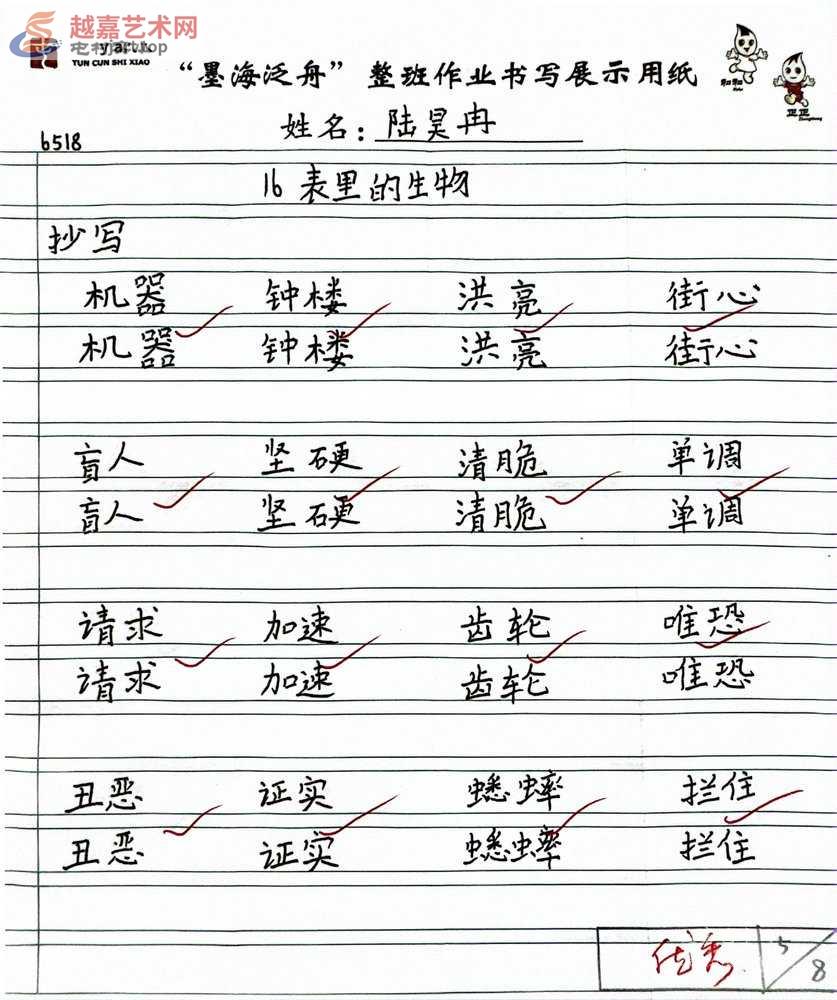 越嘉艺术网
yar
.top
TUN CUN SHI XIAO
“墨海泛舟”整班作业书写展示用纸
和和
正正
姓名：陆昊冉
6518
16 表里的生物
抄写
机器 钟楼 洪亮 街心
机器 钟楼 洪亮 街心
盲人 坚硬 清脆 单调
盲人 坚硬 清脆 单调
请求 加速 齿轮 唯恐
请求 加速 齿轮 唯恐
丑恶 证实 蟋蟀 拦住
丑恶 证实 蟋蟀 拦住
优秀 5/8